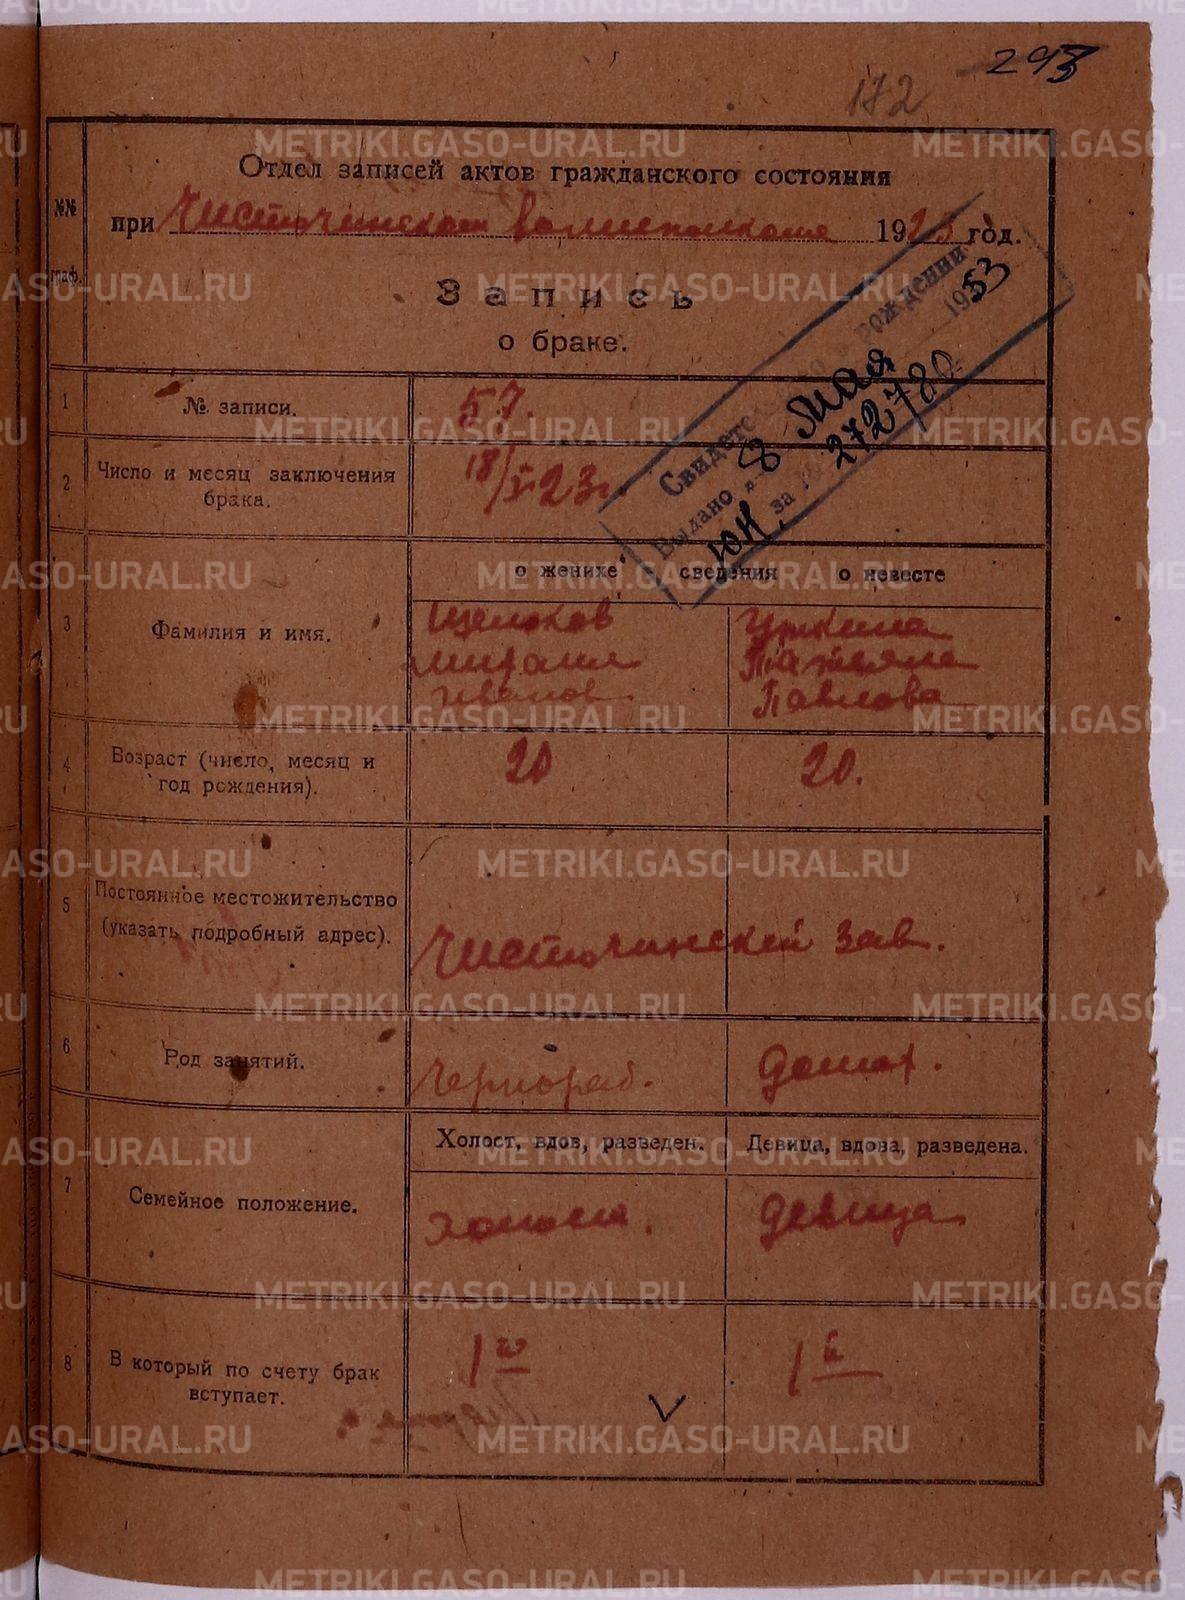 293
172
Отдел записей актов гражданского состояния
№№ граф.
при Чисточинском волисполкоме 1923 год.
Запись
о браке.
Свидетельство о рождении
Выдано „8 мая 1953
ЮН за № 272780
1 № записи. 57.
2 Число и месяц заключения брака. 18/I-23г.
о женихе сведения о невесте
3 Фамилия и имя.
Щелоков
Михаил
Иванов
Уткина
Татьяна
Павлова
4 Возраст (число, месяц и год рождения). 20 20.
5 Постоянное местожительство
(указать подробный адрес). Чисточинский зав.
6 Род занятий. Чернораб. домох.
Холост, вдов, разведен. Девица, вдова, разведена.
7 Семейное положение. холост. девица
8 В который по счету брак вступает. 1й 1й
METRIKI.GASO-URAL.RU